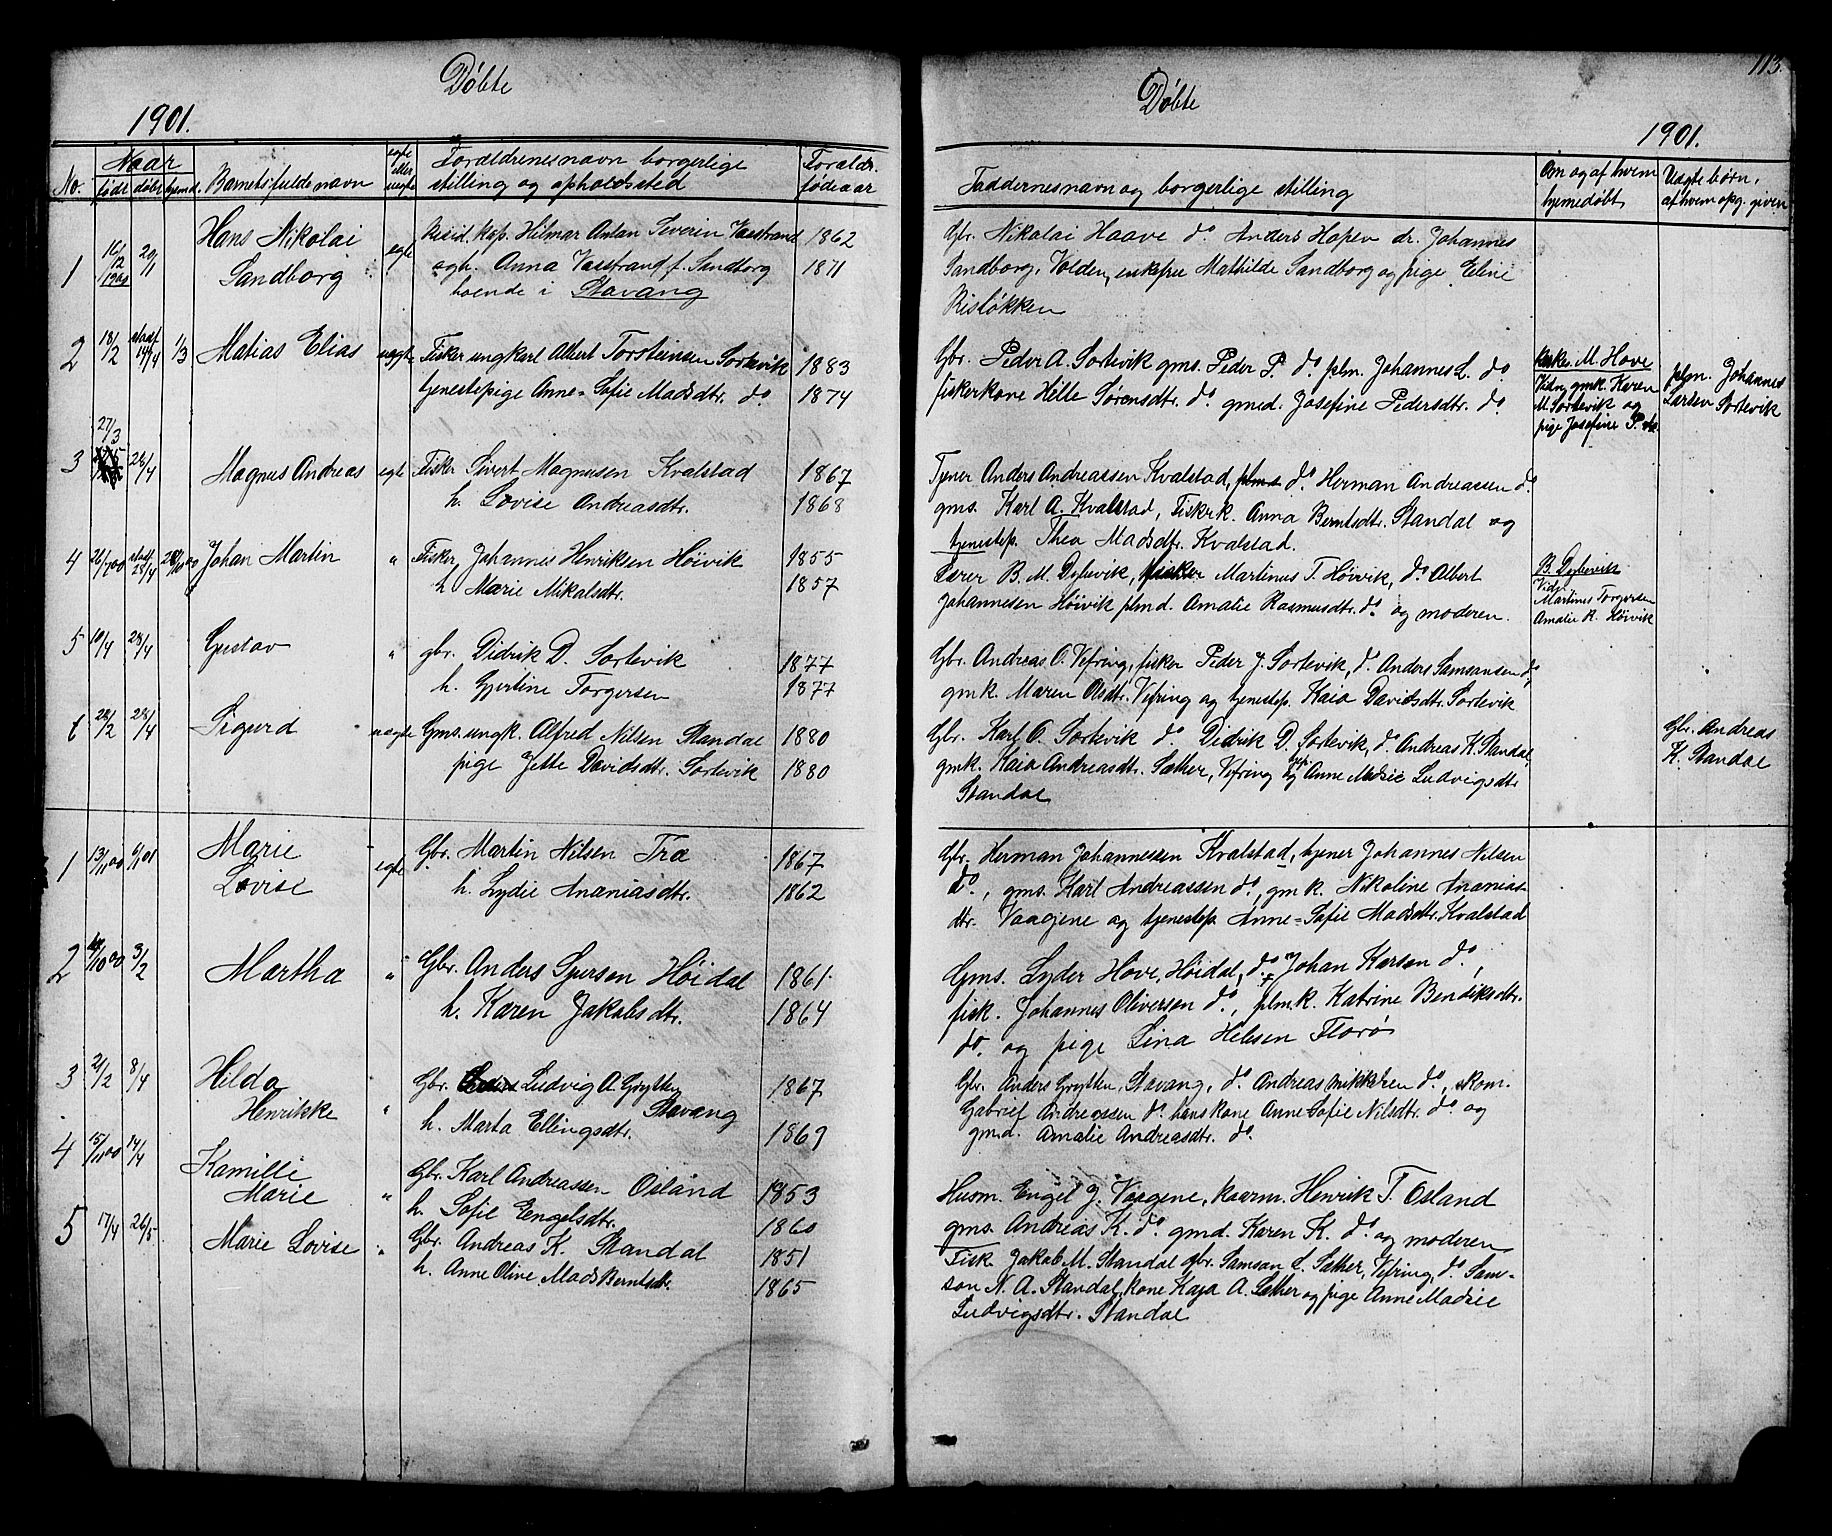 Döbte
1901.
No.
Naar
födt
döbt
hjemd.
Barnets fulde navn
egte eller uegte
Forældrenes navn borgerlige
stilling og opholdssted
Forældr.
födeaar
1
16/12 1900
20/1
Hans Nikolai
Sandborg
egte
Resid. kap. Hilmar Anton Severin Vasstrand
og h. Anna Vasstrand f. Sandborg
boende i Stavang
1862
1871
2
18/2
stadf 14/4
1/3
Matias Elias
uegte
Fisker ungkarl Albert Torsteinsen Sortevik
tjenestepige Anne-Sofie Madsdtr. do.
1883
1874
3
27/3
28/4
Magnus Andreas
egte
Fisker Sivert Magnusen Kvalstad
h. Lovise Andreasdtr.
1867
1868
4
stadf 28/4
Johan Martin
"
Fisker Johannes Henriksen Höivik
h Marie Mikalsdtr.
1855
1857
5
10/4
28/4
Gustav
"
gbr. Didrik D. Sortevik
h. Gjertine Torgersen
1877
1877
6
28/2
28/4
Sigurd
uegte
Gms. ungk. Alfred Nilsen Standal
pige Jette Davidsdtr. Sortevik
1880
1880
1
13/11 00
6/1 01
Marie
Lovise
egte
Gbr. Martin Nilsen Træ
h. Lydie Ananiasdtr.
1867
1862
2
3/2
Martha
"
Gbr. Anders Sjursen Höidal
h. Karen Jakobsdtr.
1861
1864
3
21/2
8/4
Hilda
Henrikke
"
Gbr. Ludvig A Grytten
Stavang
h. Marta Ellingsdtr.
1867
1869
4
15/11 00
14/4
Kamilli
Marie
"
Gbr. Karl Andreassen Osland
h. Sofie Engelsdtr.
1853
1860
5
17/4
26/5
Marie Lovise
"
Gbr. Andreas K. Standal
h. Anne Oline Mads Berntsdtr.
1851
1865
113.
Döbte
1901.
Faddernes navn og borgerlige stilling
Om og af hvem
hjemedöbt
Uægte börn,
af hvem opg. given
Gbr. Nikolai Haave do Anders Hopen dr. Johannes
Sandborg, Volden, enkefru Mathilde Sandborg og pige Eline
Risløkken
Gbr. Peder A. Sortevik gms. Peder P. do. plm. Johannes L. do.
fiskerkone Hille Sörensdtr. do. gmd. Josefine Pedersdtr. do
M. Hove
Vidn, gmk. Karen
M. Sortevik og
pige Josefine P. do.
plm. Johannes
Larsen Sortevik
Tjener Anders Andreassen Kvalstad, do Herman Andreassen do
gms. Karl A. Kvalstad, Fiskrk. Anna Berntsdtr. Standal og
tjenestep. Thea Madsdtr. Kvalstad.
Lærer B. M. Dybevik, fisker Martinus T. Höivik, do Albert
Johannesen Höivik plmd. Amalie Rasmusdtr. do og moderen.
B. Dybevik
Vidn.
Martinus Torgersen
Amalie R. Höivik
Gbr. Andreas O. Vefring, fisker Peder J. Sortevik, do. Anders Samsonsen do,
gmk. Maren Olsdtr. Vefring og tjenestep. Kaia Davidsdtr. Sortevik
Gbr. Karl O. Sortevik do. Didrik D. Sortevik, do. Andreas K. Standal,
gmk. Kaia Andreasdtr. Sæther, Vefring og Anne Madsie Ludvigsdtr
Standal
Gbr. Andreas
K. Standal
Gbr. Herman Johannessen Kvalstad, tjener Johannes Nilsen
do., gms. Karl Andreassen do, gmk. Nikoline Ananias-
dtr. Vaagene og tjenestep. Anne-Sofie Madsdtr. Kvalstad
Gms. Lyder Hove, Höidal, do. Johan Larsen do,
fisk. Johannes Oliversen do, plmk. Katrine Bendiksdtr.
do. og pige Lina Helesen Florö
Gbr. Anders Grytten, Stavang, do. Andreas Mikkelsen do, skom.
Gabriel Andreassen do. hans kone Anne Sofie Nilsdtr. do og
gmd. Amalie Andreasdtr. do.
Husm. Engel J. Vaagene, kaarm. Henrik T. Osland
gms. Andreas K. do. gmd. Karen K. do og moderen
Fisk. Jakob M. Standal gbr. Samson L. Sæther, Vefring, do. Sam-
son N. A. Standal, kone Kaja A. Sæther og pige Anne Madsie
Ludvigsdtr. Standal